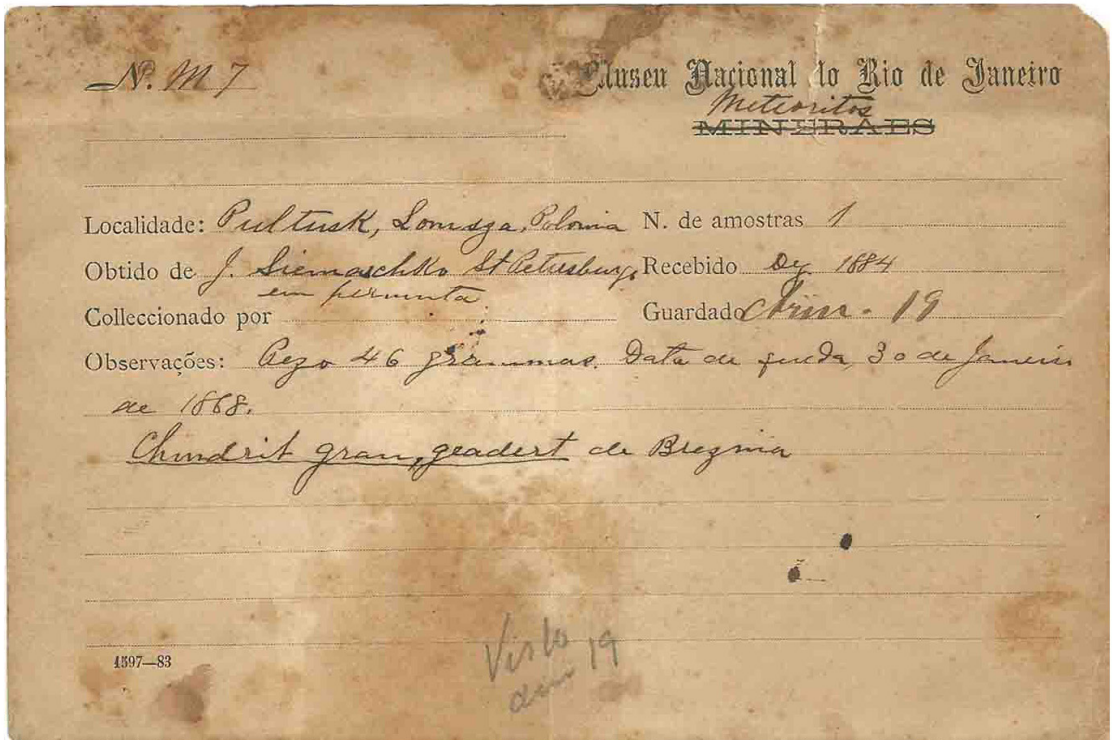 Nº. M 7
Museu Nacional do Rio de Janeiro
Meteoritos
MINERAES
Localidade: Pultusk, Lomsza, Polonia N. de amostras 1
Obtido de J. Siemaschko St Petersburg, Recebido 1884
em permuta
Colleccionado por Guardado 19
Observações: Pezo 46 grammas. Data de queda, 30 de Janeiro
de 1868.
Chondrit grau, geadert de Brezina
1597—83
Visto
19